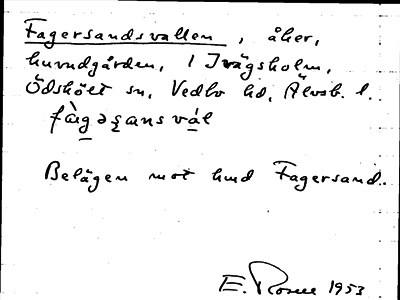 Fagersandsvallen, åker,
huvudgården, 1 Ivägsholm,
Ödskölt sn, Vedbo hd, Älvsb. l.
fàgəʂansvál
Belägen mot hmd Fagersand.
E. Rosell 1953